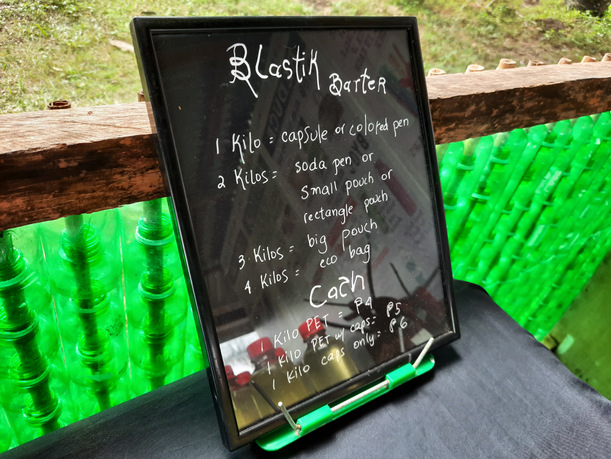 Blastik Barter
1 Kilo = capsule or colored pen
2 Kilos = soda pen or
small pouch or
rectangle pouch
3 Kilos = big pouch
4 Kilos = eco bag
Cash
1 Kilo PET = ₱4
1 Kilo PET w/ caps = ₱5
1 Kilo caps only = ₱6